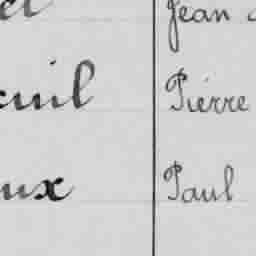 Jean
euil Pierre
ux Paul